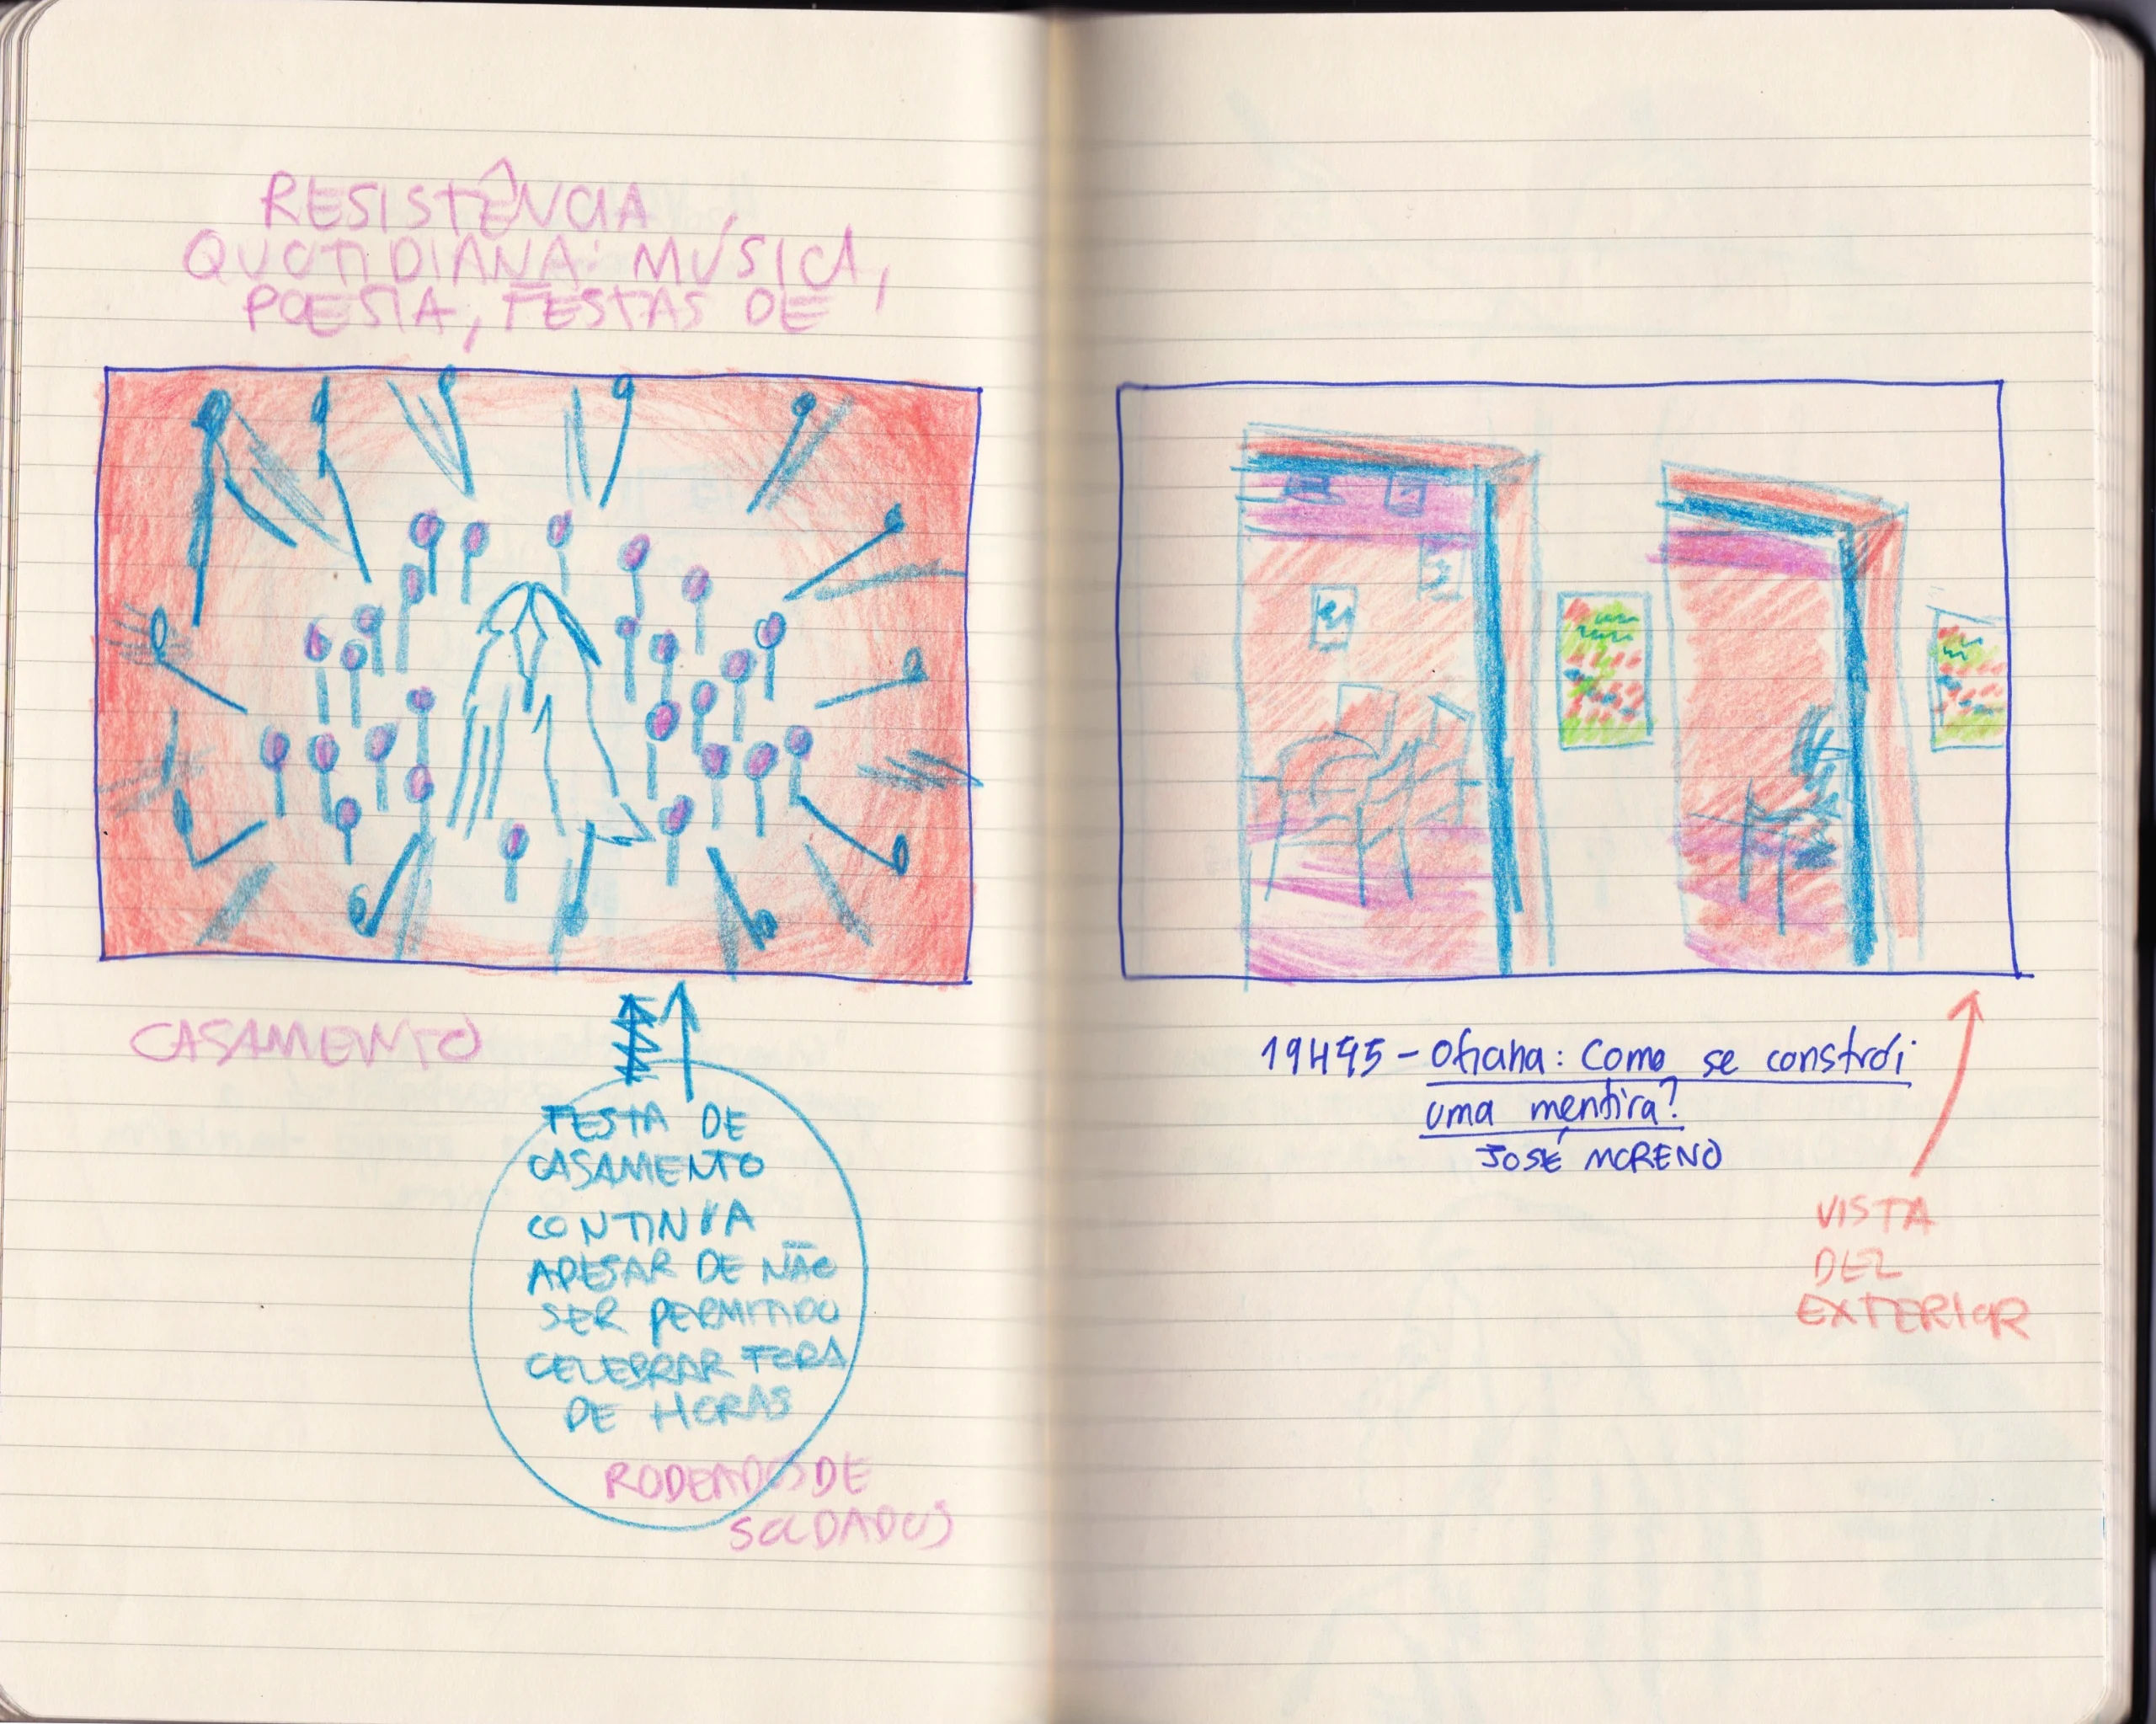 RESISTÊNCIA
QUOTIDIANA: MÚSICA,
POESIA, FESTAS DE
CASAMENTO
FESTA DE
CASAMENTO
CONTINUA
APESAR DE NÃO
SER PERMITIDO
CELEBRAR FORA
DE HORAS
RODEADOS DE
SOLDADOS
Oficina: Como se constrói
uma mentira?
JOSÉ MORENO
VISTA
DEL
EXTERIOR